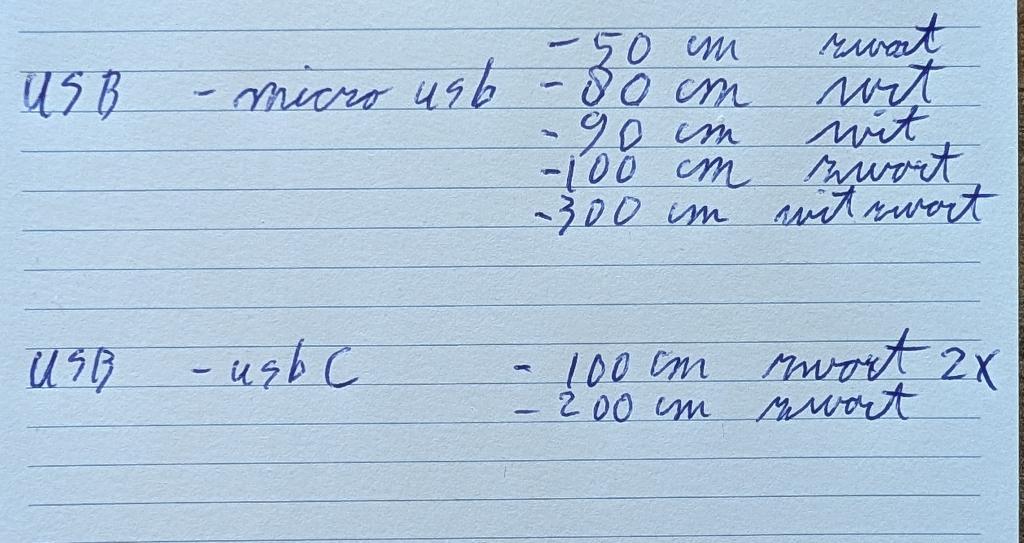 - 50 cm zwart
USB - micro usb - 80 cm wit
- 90 cm wit
- 100 cm zwart
- 300 cm wit zwart
USB - usb C - 100 cm zwart 2x
- 200 cm zwart